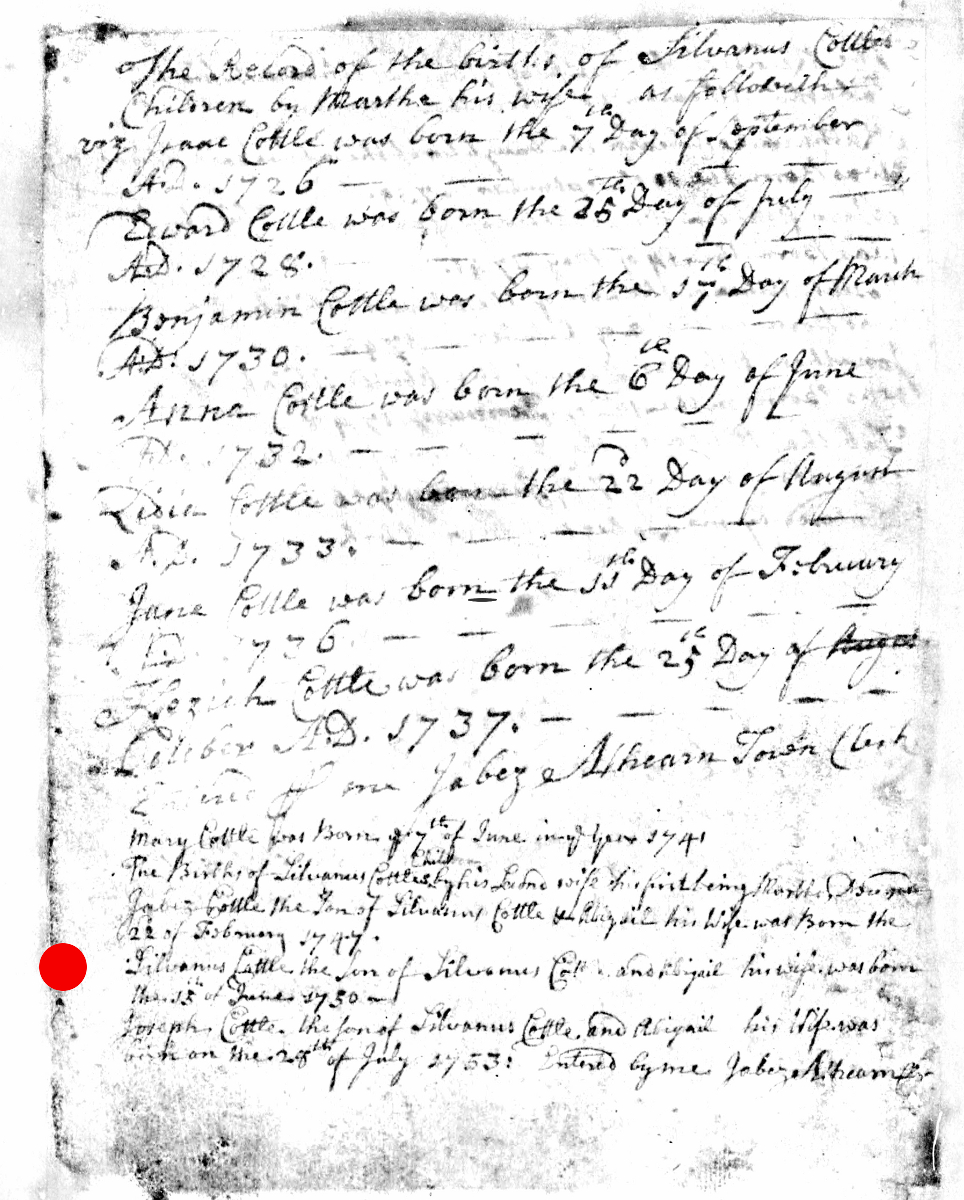 The Record of the births of Silvanus Cottles
Children by Martha his wife as followeth
viz Isaac Cottle was born the 7th Day of September
A.D. 1726
Edward Cottle was born the 25th Day of July
A.D. 1728.
Benjamin Cottle was born the 17th Day of March
A.D. 1730.
Anna Cottle was born the 6th Day of June
A.D. 1732.
Cottle was born the 22d Day of August
A.D. 1733.
Jane Cottle was born the 11th Day of Februury
A.D. 1736
Cottle was born the 25th Day of Augus
October A.D. 1737.
Entred me Jabez Athearn Town Clerk
Mary Cottle was Born ye 7th of June in ye year 1741
The Births of Silvanus Cottles Children by his Second wife his first being Martha
Jabez Cottle the Son of Silvanus Cottle & Abigail his Wife was Born the
22 of February 1747.
Silvanus Cottle the Son of Silvanus Cottle and Abigail his wife was born
the 15th of June 1750
Joseph Cottle the son of Silvanus Cottle and Abigail his Wife was
born on the 28th of July 1753: Entered by me Jabez Athearn